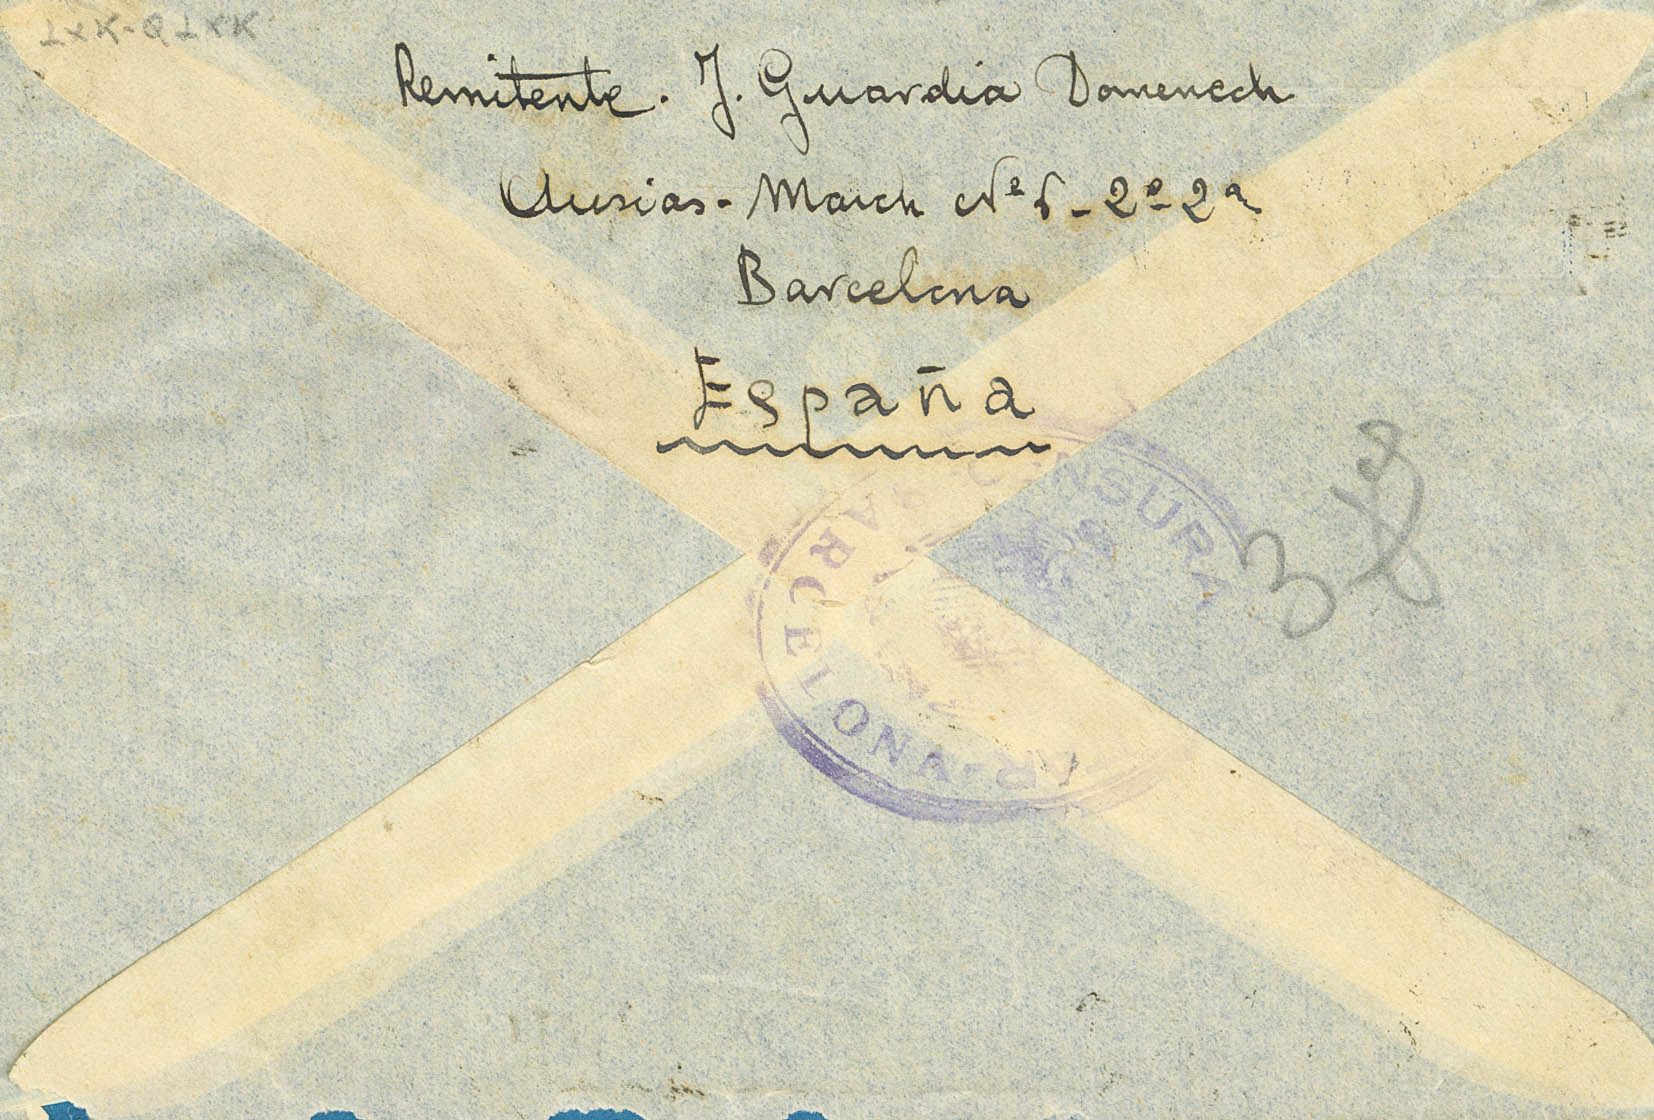 ⊥xK-Q⊥xK
Remitente. J. Guardia Domenech
Ausias-March Nº 6-2º-2ª
Barcelona
España
CENSURA
BARCELONA